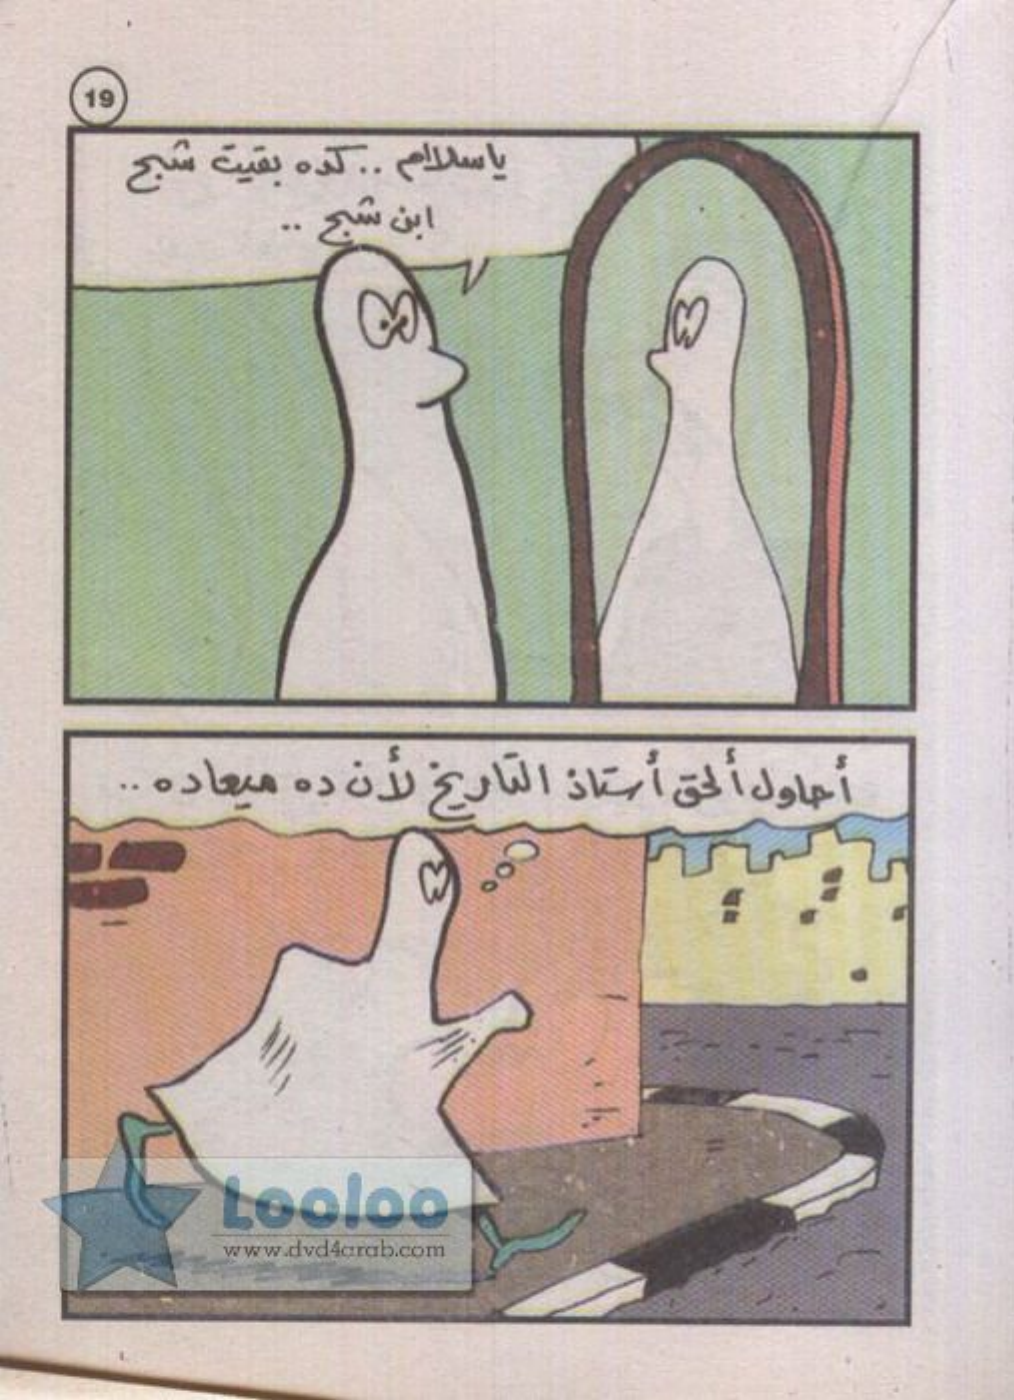 19
ياسلاام .. كده بقيت شبح
ابن شبح ..
أحاول ألحق أستاذ التاريخ لأن ده ميعاده ..
Looloo
www.dvd4arab.com